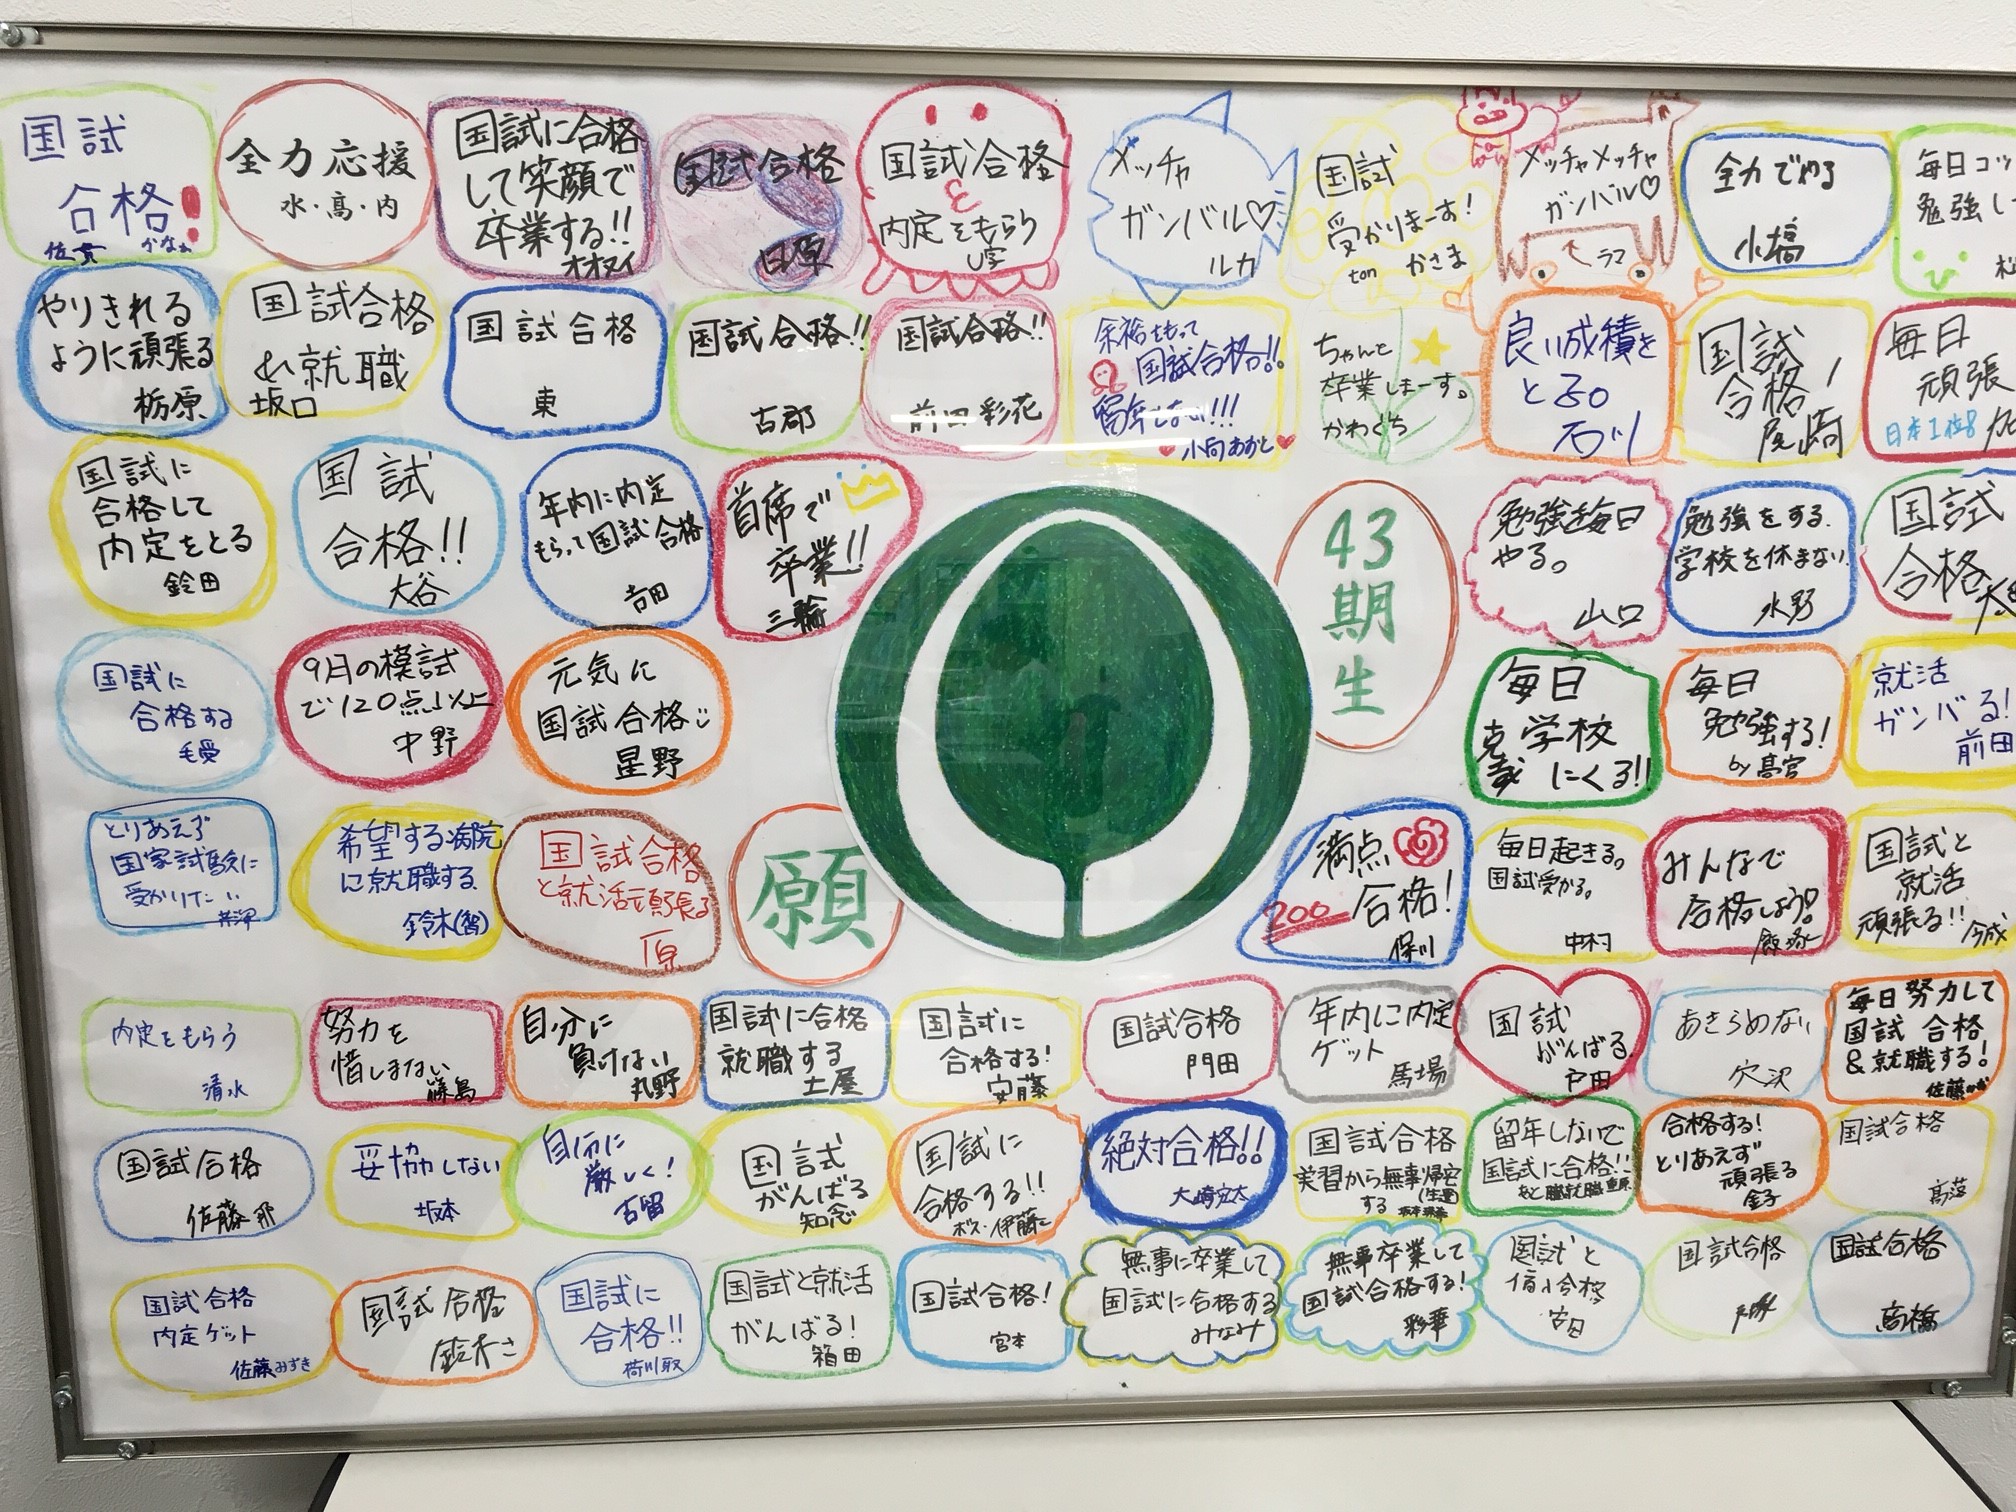 国試
合格!
佐貫 かなぁ
全力応援
水・高・内
国試に合格
して笑顔で
卒業する!!
オオヌイ
国試合格
日原
国試合格
&
内定をもらう
メッチャ
ガンバル♡
ルカ
国試
受かりまーす!
ton かさま
メッチャメッチャ
ガンバル♡
ラマ
全力でやる
小橋
毎日コツ
勉強し
やりきれる
ように頑張る
栃原
国試合格
&就職
坂口
国試合格
東
国試合格!!
古郡
国試合格!!
前田彩花
余裕をもって
国試合格!!
留年しない!!!
小向あおと
ちゃんと
卒業しまーす。
かわぐち
良い成績を
とる
石川
国試
合格!
尾崎
毎日
頑張
国試に
合格して
内定をとる
鈴田
国試
合格!!
大谷
年内に内定
もらって国試合格
吉田
首席で
卒業!!
三輪
43
期
生
勉強を毎日
やる。
山口
勉強をする。
学校を休まない
水野
国試
合格
国試に
合格する
9月の模試
で120点以上
中野
元気に
国試合格
星野
毎日
学校
にくる!!
毎日
勉強する!
by 髙宮
就活
ガンバる!
前田
とりあえず
国家試験に
受かりたい
希望する病院
に就職する
鈴木(智)
国試合格
と就活頑張る
原
願
満点
200 合格!
保川
毎日起きる。
国試受かる。
中村
みんなで
合格しよう!
飯塚
国試と
就活
頑張る!!
今成
内定をもらう
清水
努力を
惜しまない
篠島
自分に
負けない
丸野
国試に合格
就職する
土屋
国試に
合格する!
安藤
国試合格
門田
年内に内定
ゲット
馬場
国試
がんばる
戸田
あきらめない
穴沢
毎日努力して
国試合格
&就職する!
国試合格
佐藤 那
妥協しない
坂本
自分に
厳しく!
古留
国試
がんばる
知念
国試に
合格する!!
ボス・伊藤
絶対合格!!
大崎宏太
国試合格
実習から無事帰宅
する
留年しないで
国試に合格!!
合格する!
とりあえず
頑張る
金子
国試合格
高落
国試合格
内定ゲット
佐藤みずき
国試合格
鈴木さ
国試に
合格!!
国試と就活
がんばる!
箱田
国試合格!
宮本
無事に卒業して
国試に合格する
みなみ
無事卒業して
国試合格する!
彩華
国試と
国試合格
国試合格
高橋